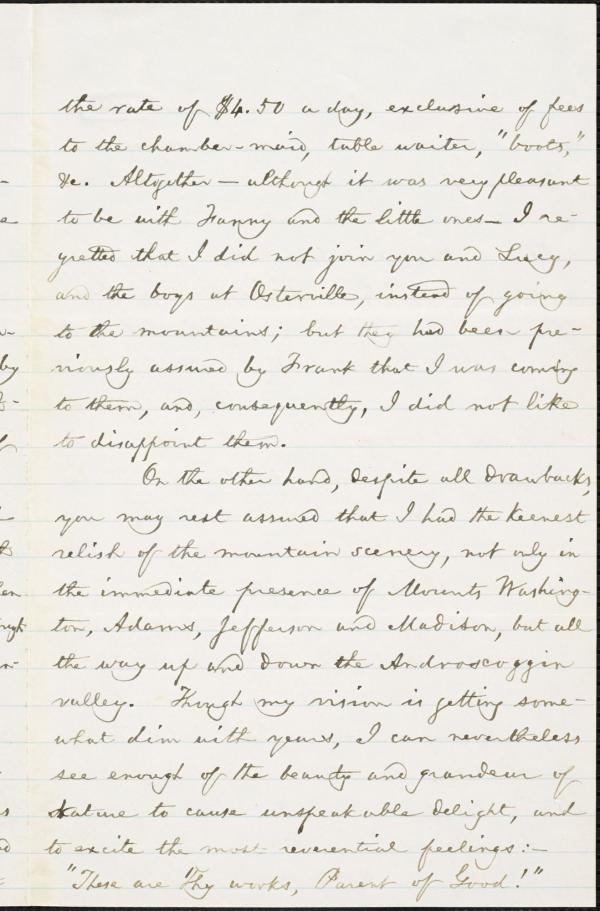 the rate of $4.50 a day, exclusive of fees
to the chamber-maid, table waiter, "boots,"
&c. Altogether — although it was very pleasant
to be with Fanny and the little ones — I re-
gretted that I did not join you and Lucy,
and the boys at Osterville, instead of going
to the mountains; but they had been pre-
viously assured by Frank that I was coming
to them, and, consequently, I did not like
to disappoint them.
On the other hand, despite all drawbacks,
you may rest assured that I had the keenest
relish of the mountain scenery, not only in
the immediate presence of Mounts Washing-
ton, Adams, Jefferson and Madison, but all
the way up and down the Androscoggin
valley. Though my vision is getting some-
what dim with years, I can nevertheless
see enough of the beauty and grandeur of
Nature to cause unspeakable delight, and
to excite the most reverential feelings:—
"These are Thy works, Parent of Good!"